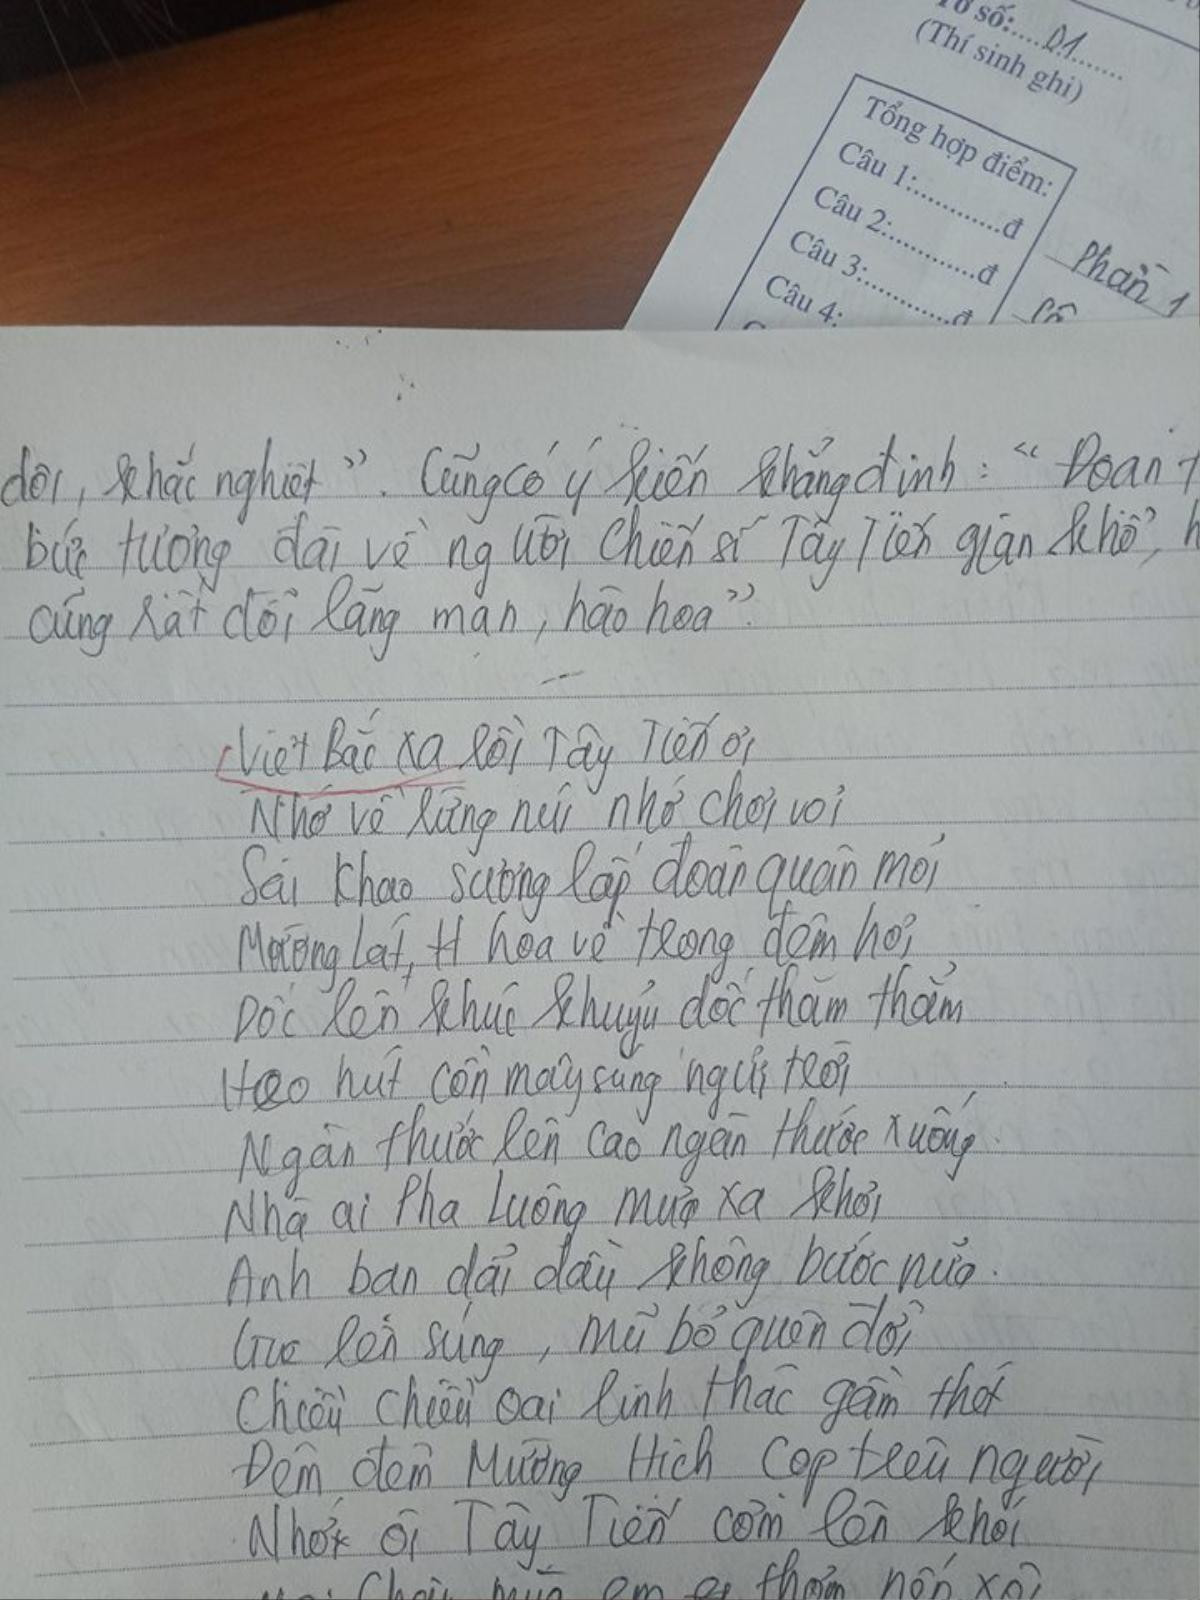 Tờ số:....01........
(Thí sinh ghi)
Tổng hợp điểm:
Câu 1:............đ
Câu 2:............đ
Câu 3:............đ
Câu 4:
Phần 1
dội, khắc nghiệt". Cũng có ý kiến khẳng định: "Đoạn t
bức tượng đài về người chiến sĩ Tây Tiến gian khổ, h
cũng rất đỗi lãng mạn, hào hoa".
Việt Bắc xa rồi Tây Tiến ơi
Nhớ về rừng núi nhớ chơi vơi
Sài Khao sương lấp đoàn quân mỏi
Mường Lát, H hoa về trong đêm hơi
Dốc lên khúc khuỷu dốc thăm thẳm
Heo hút cồn mây súng ngửi trời
Ngàn thước lên cao ngàn thước xuống
Nhà ai Pha Luông mưa xa khơi
Anh bạn dải dầu không bước nữa.
Gục lên súng, mũ bỏ quên đời
Chiều chiều oai linh thác gầm thét
Đêm đêm Mường Hịch cọp trêu người
Nhớ ôi Tây Tiến cơm lên khói
Châu mùa em thơm nếp xôi